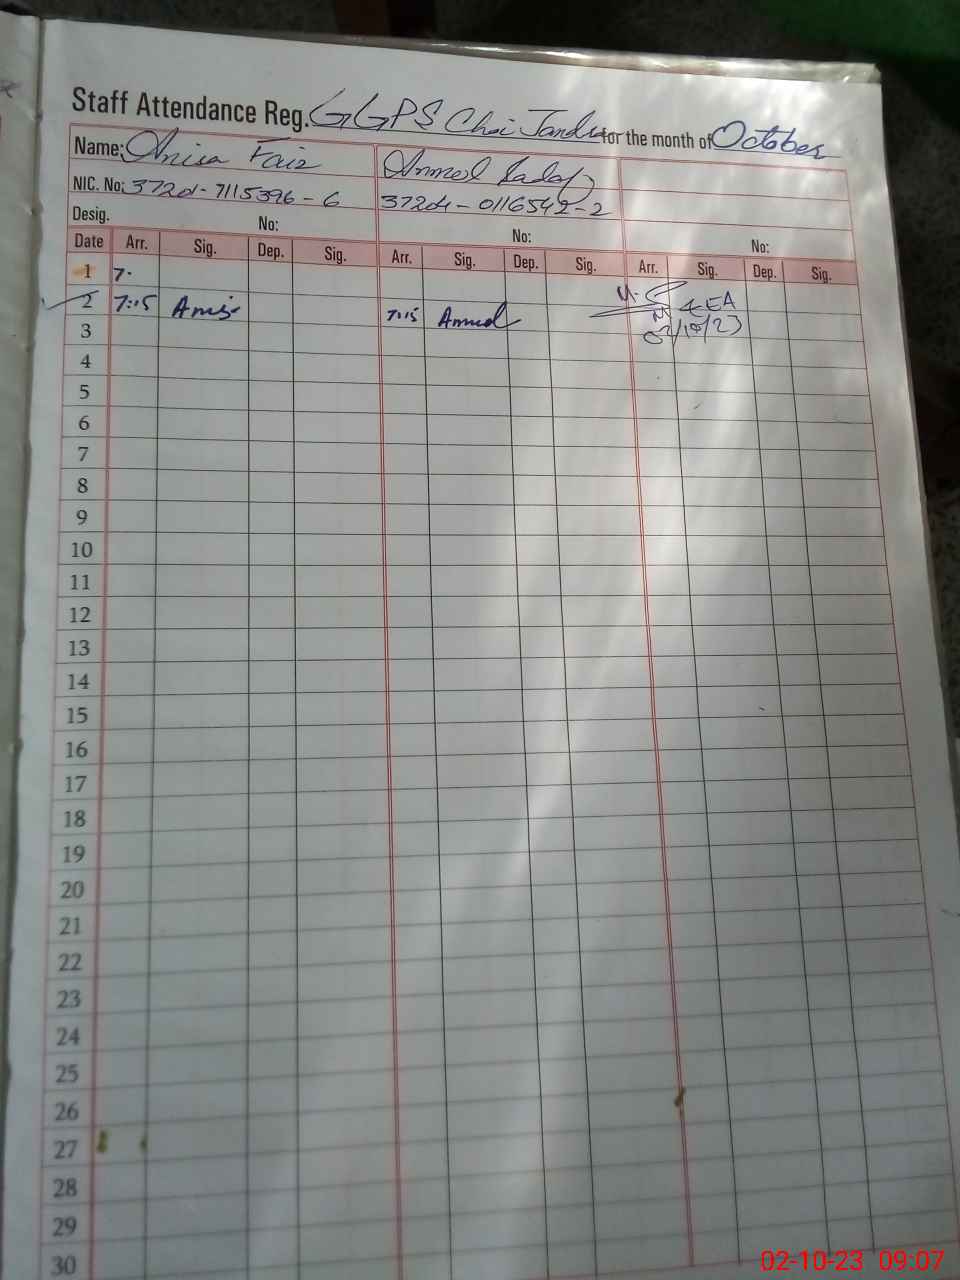 Staff Attendance Reg. GGPS Choi Jandu for the month of October
Name: Anisa Faiz Anmol Sadaf
NIC. No: 37201-7115396-6 37204-0116542-2
Desig. No: No: No:
Date Arr. Sig. Dep. Sig. Arr. Sig. Dep. Sig. Arr. Sig. Dep. Sig.
1 7.
2 7:15 Anisa 7:15 Anmol AEA
3 02/10/23
4
5
6
7
8
9
10
11
12
13
14
15
16
17
18
19
20
21
22
23
24
25
26
27
28
29
30
02-10-23 09:07